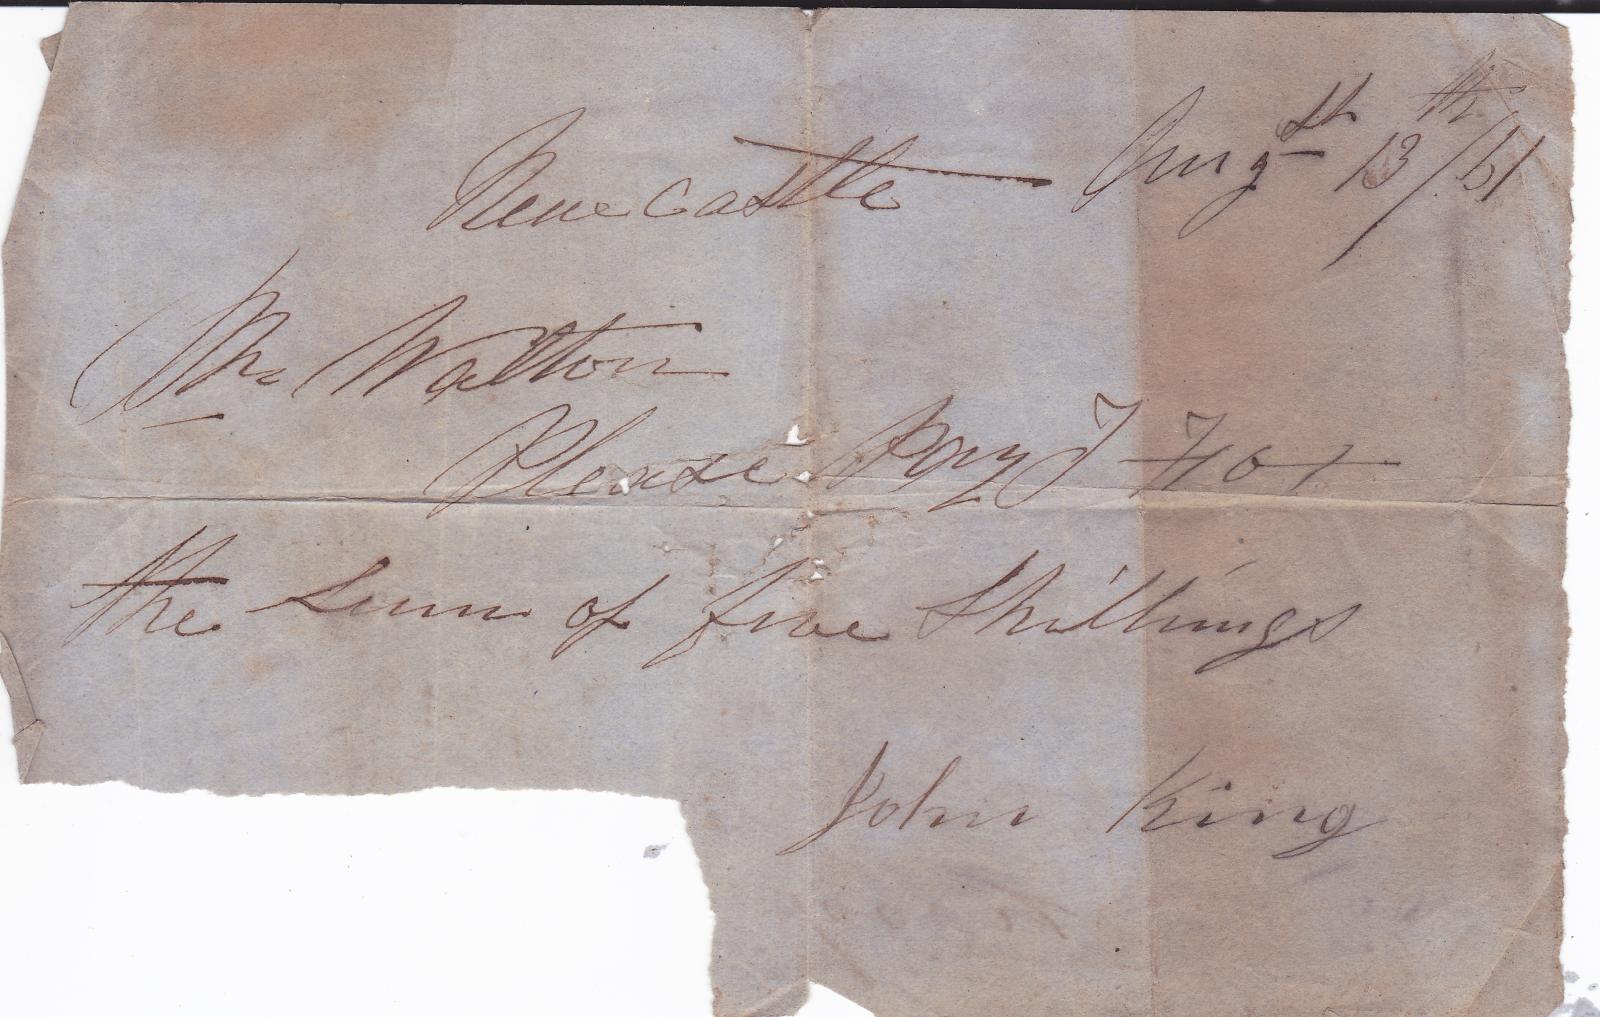 Newcastle Augst 13th/61
Mr Walton
Please Pay J Fox
the Sum of five Shillings
John King